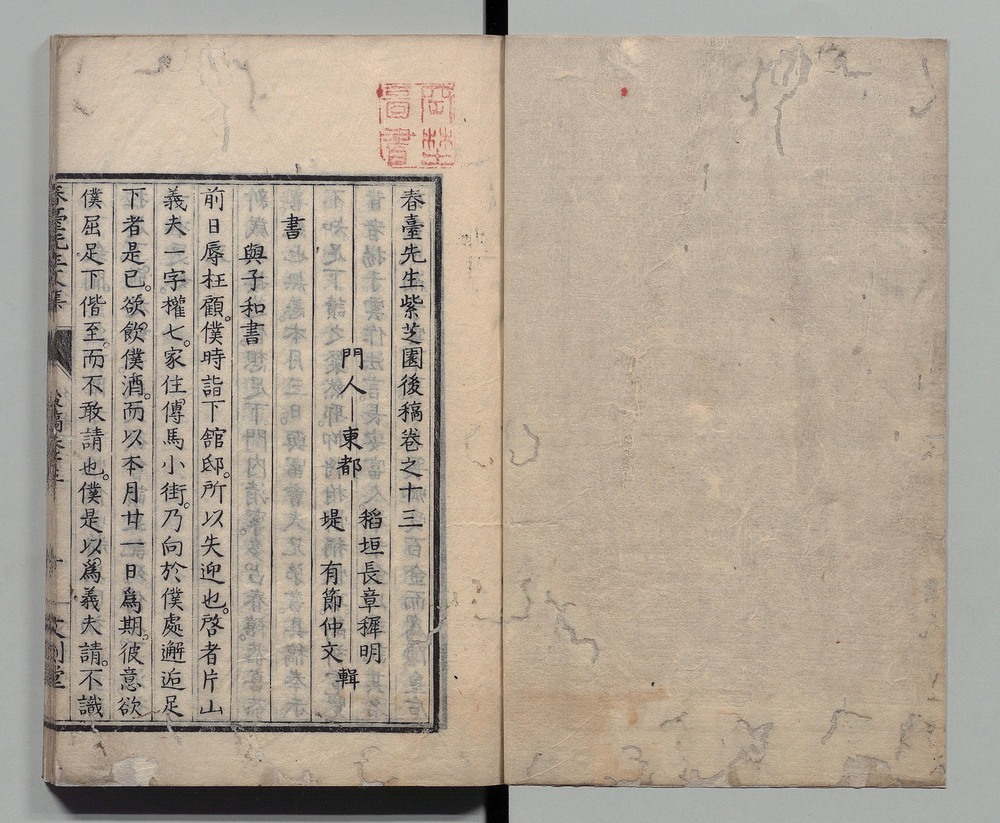 春臺先生紫芝園後稿卷之十三
門人 東都 稻垣長章穉明
堤有節仲文 輯
書
與子和書
前日辱枉顧。僕時詣下館邸。所以失迎也。啓者片山
義夫一字權七。家住傳馬小街。乃向於僕處邂逅足
下者是已。欲飲僕酒。而以本月廿一日爲期。彼意欲
僕屈足下偕至。而不敢請也。僕是以爲義夫請。不識